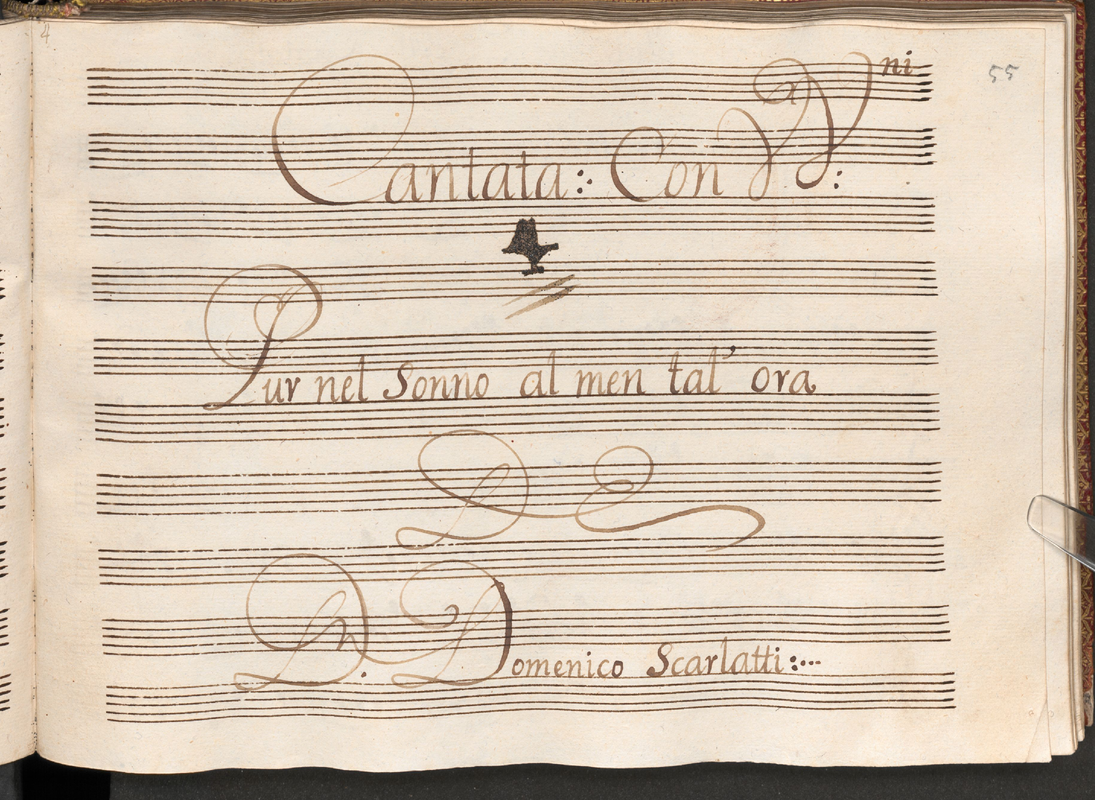 4
55
Cantata: Con VV.ni:
Pur nel Sonno al men tal' ora
DE
Dn. Domenico Scarlatti: